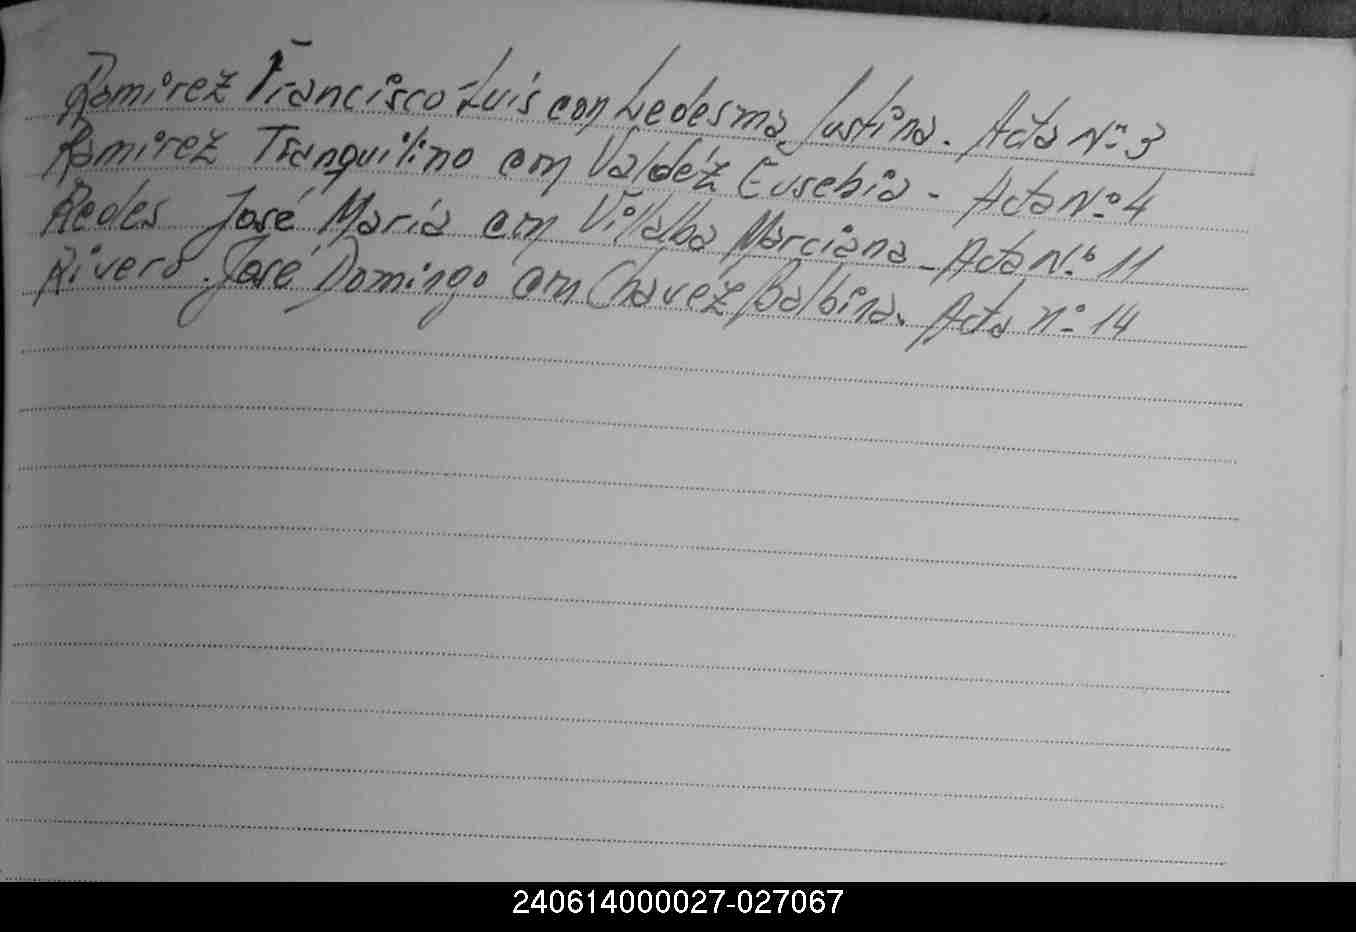 Ramirez Francisco Luis con Ledesma Justina. Acta Nº 3
Ramirez Tranquilino con Valdéz Eusebia - Acta Nº 4
Redes José María con Villalba Marciana - Acta Nº 11
Rivero José Domingo con Chavez Balbina. Acta nº 14
240614000027-027067